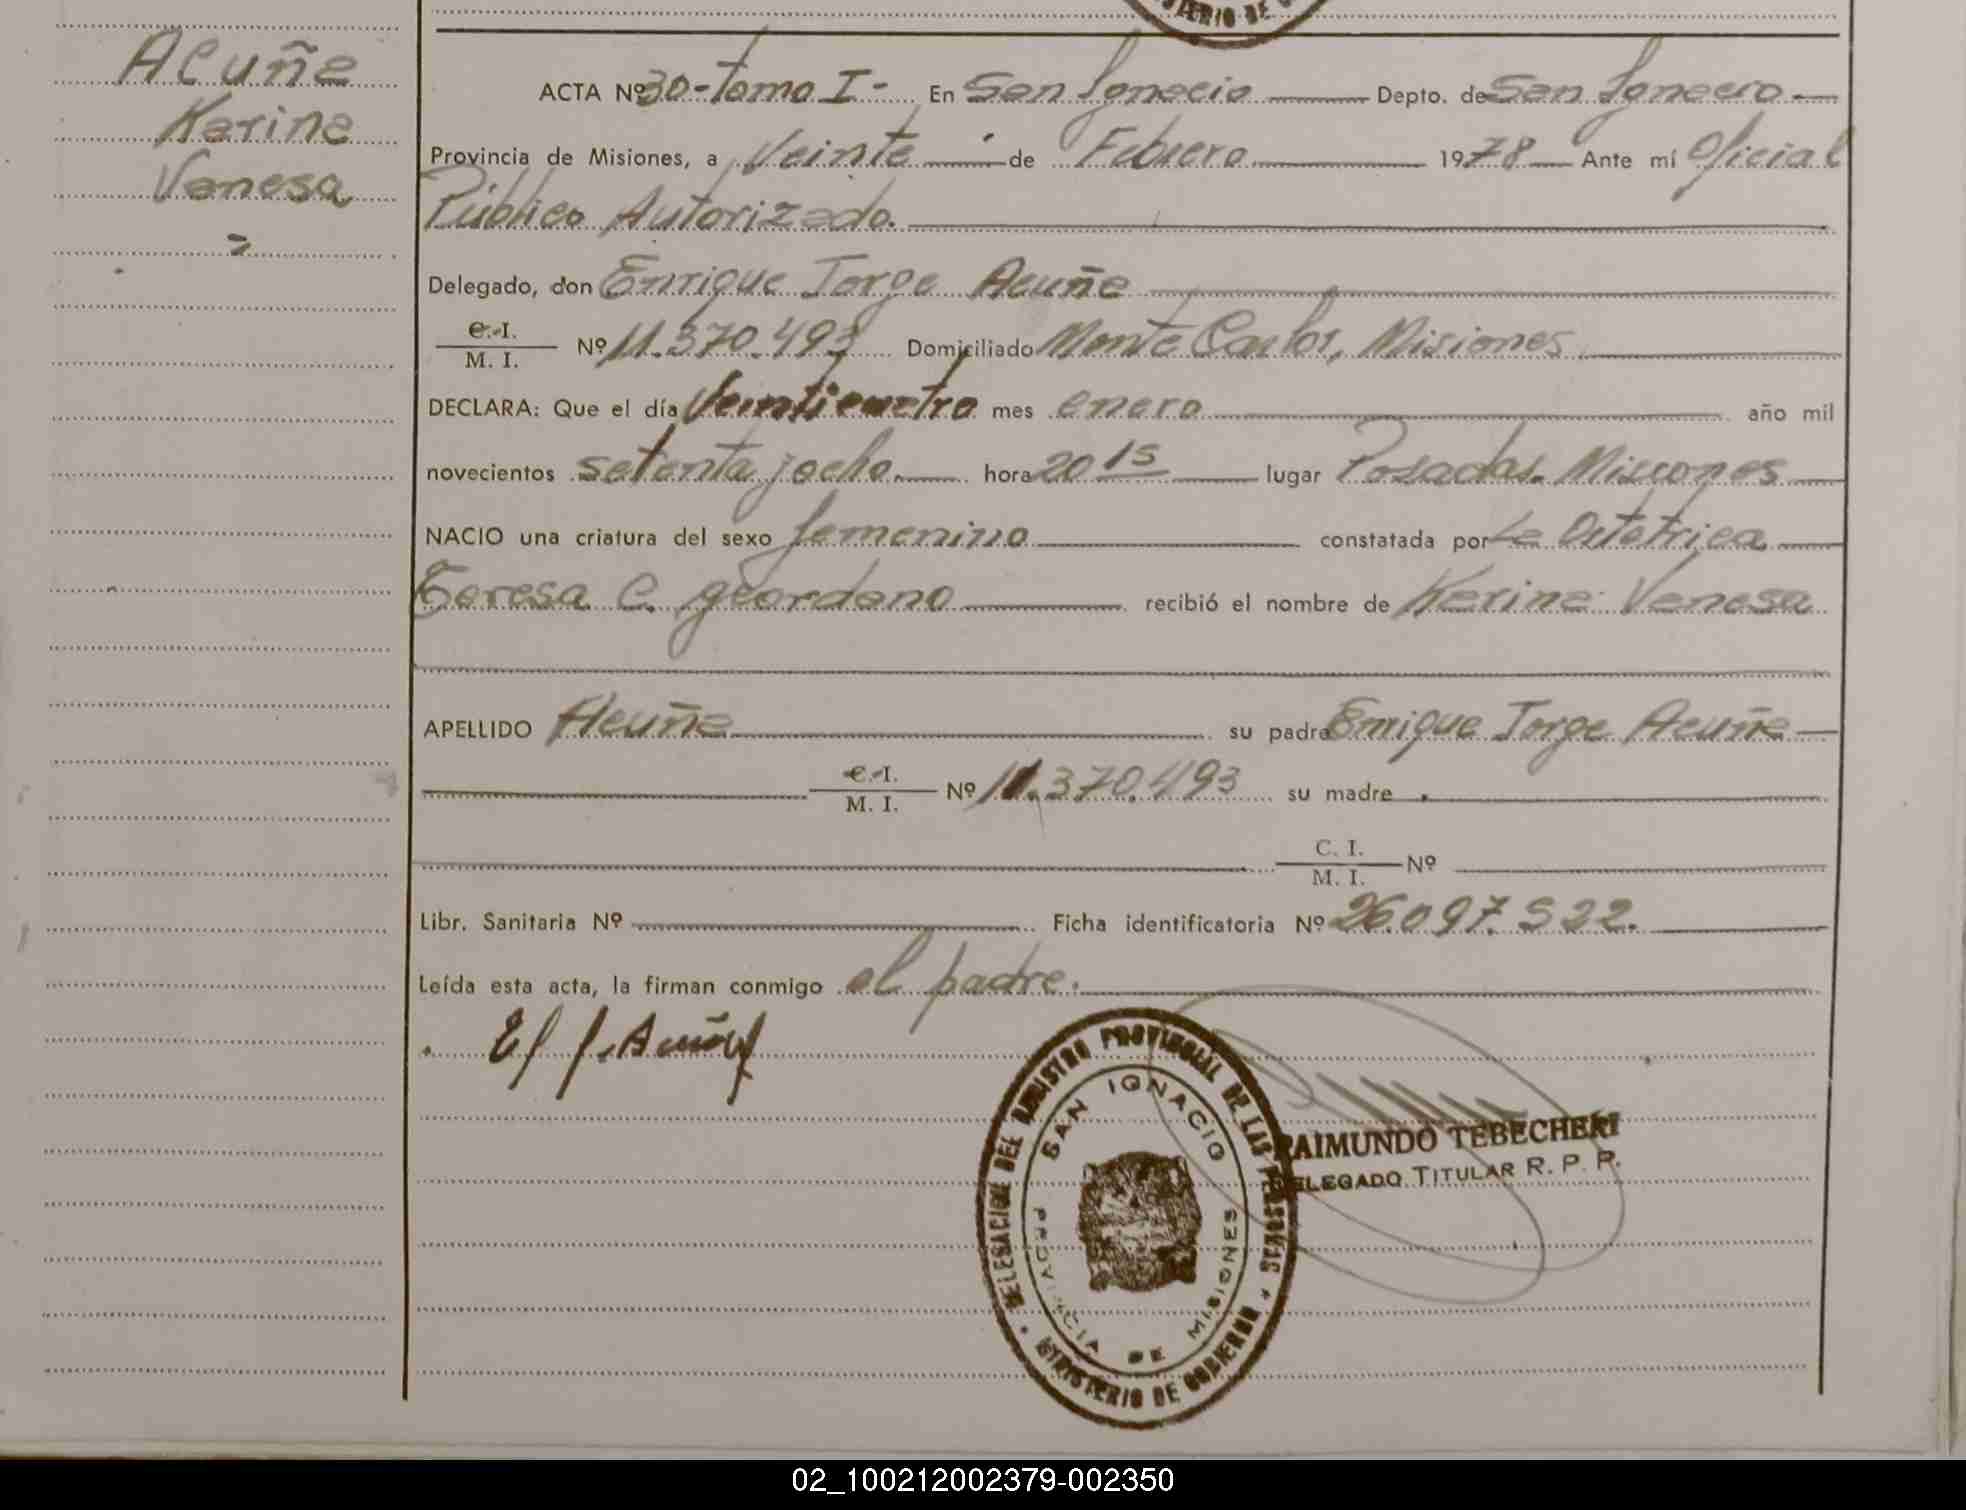 Acuña
Karina
Vanesa
=
ACTA Nº 30 - tomo I - En San Ignacio Depto. de San Ignacio
Provincia de Misiones, a Veinte de Febrero 1978 Ante mí Oficial
Público Autorizado.
Delegado, don Enrique Jorge Acuña
C. I.
M. I. Nº 11.370.493 Domiciliado Monte Carlos, Misiones
DECLARA: Que el día Veinticuatro mes enero año mil
novecientos setenta y ocho. hora 20 15 lugar Posadas. Misiones
NACIO una criatura del sexo femenino constatada por La Ostetrica
Teresa C. geordano recibió el nombre de Karina Vanesa
APELLIDO Acuña su padre Enrique Jorge Acuña
C. I.
M. I. Nº 11.370.493 su madre
C. I.
M. I. Nº
Libr. Sanitaria Nº Ficha identificatoria Nº 26.097.522.
Leída esta acta, la firman conmigo el padre.
DELEGACION DEL REGISTRO PROVINCIAL DE LAS PERSONAS
SAN IGNACIO
PROVINCIA DE MISIONES
MINISTERIO DE GOBIERNO
RAIMUNDO TEBECHERI
DELEGADO TITULAR R. P. P.
02_100212002379-002350